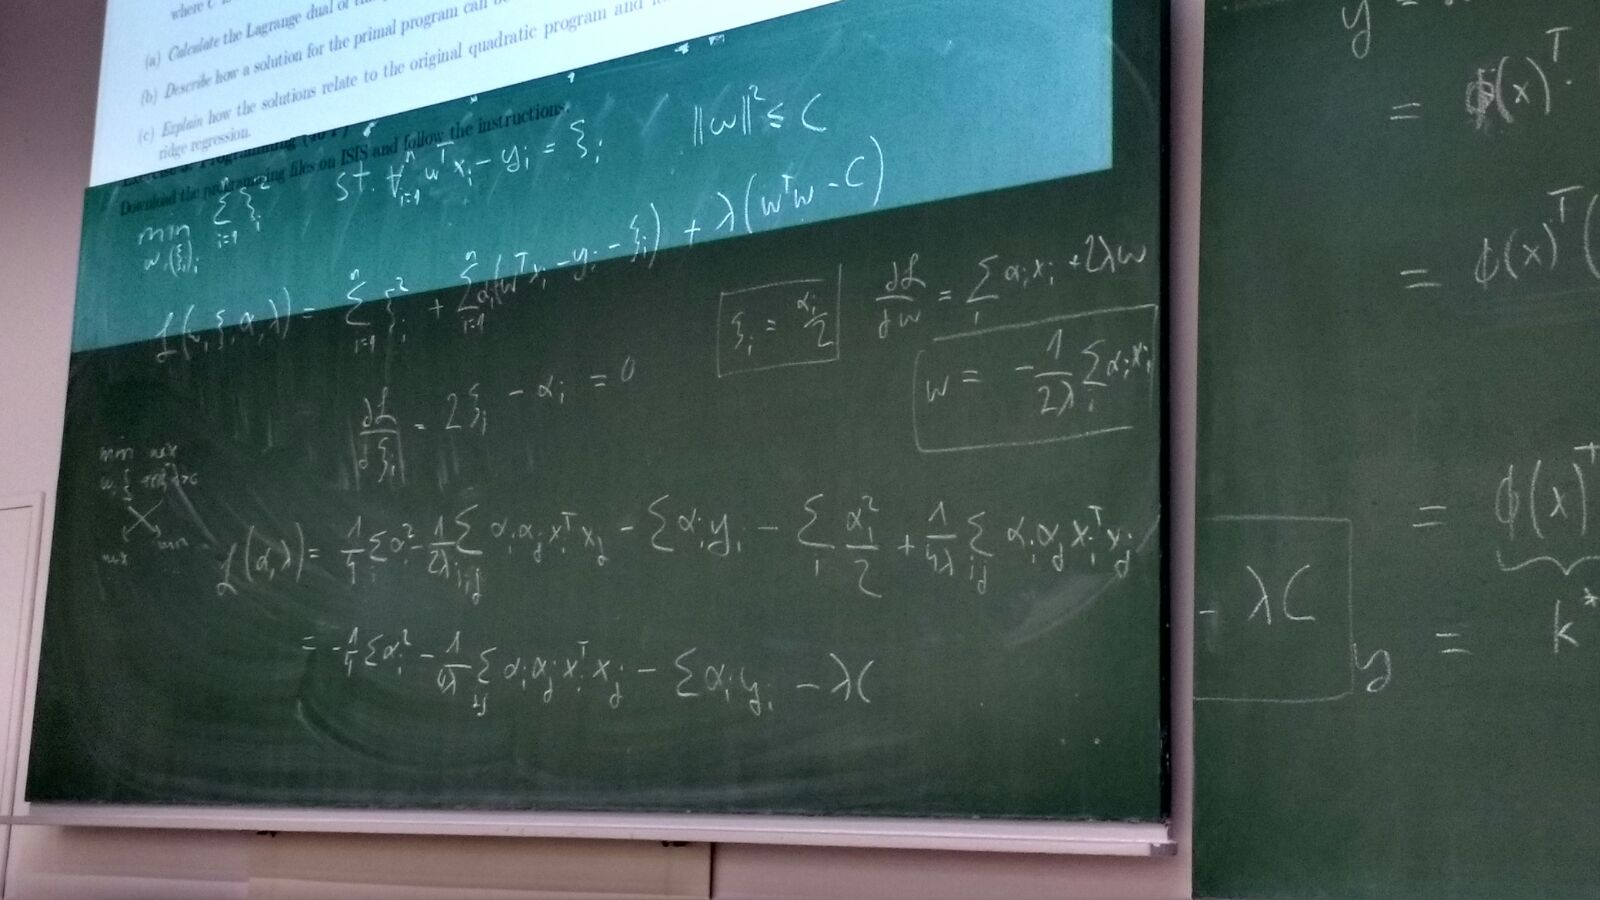 where C
(a) Calculate the Lagrange dual of
(b) Describe how a solution for the primal program can
(c) Explain how the solutions relate to the original quadratic program and
ridge regression.
Programming
Download the programming files on ISIS and follow the instructions.
min_{w,(ξ_i)_i} Σ_{i=1}^n ξ_i^2 st. ∀_{i=1}^n w^T x_i - y_i = ξ_i ||w||^2 ≤ C
L(w, ξ, α, λ) = Σ_{i=1}^n ξ_i^2 + Σ_{i=1}^n α_i(w^T x_i - y_i - ξ_i) + λ(w^T w - C)
∂L/∂ξ_i = 2ξ_i - α_i = 0
ξ_i = α_i/2
∂L/∂w = Σ_i α_i x_i + 2λw
w = -1/2λ Σ_i α_i x_i
min max
max min
L(α,λ) = 1/4 Σ_i α_i^2 - 1/2λ Σ_{i,j} α_i α_j x_i^T x_j - Σ α_i y_i - Σ_i α_i^2/2 + 1/4λ Σ_{ij} α_i α_j x_i^T x_j
- λC
= -1/4 Σ α_i^2 - 1/4λ Σ_{ij} α_i α_j x_i^T x_j - Σ α_i y_i - λC
y =
= ϕ(x)^T
= ϕ(x)^T (
= ϕ(x)^T
y = k*